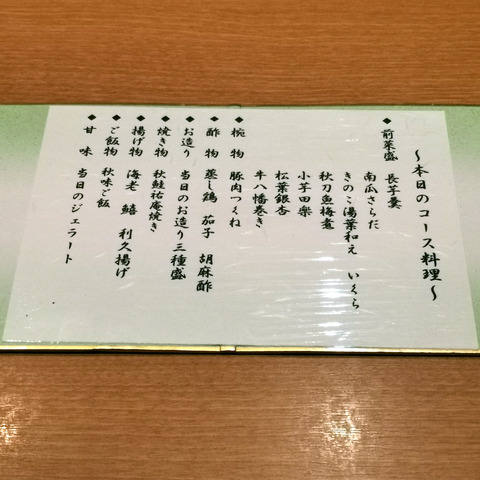 ～本日のコース料理～
◆ 前菜盛 長芋羹
南瓜さらだ
きのこ湯葉和え いくら
秋刀魚梅煮
小芋田楽
松葉銀杏
牛八幡巻き
◆ 椀物 豚肉つくね
◆ 酢物 蒸し鶏 茄子 胡麻酢
◆ お造り 当日のお造り三種盛
◆ 焼き物 秋鮭祐庵焼き
◆ 揚げ物 海老 鱚 利久揚げ
◆ ご飯物 秋味ご飯
◆ 甘味 当日のジェラート